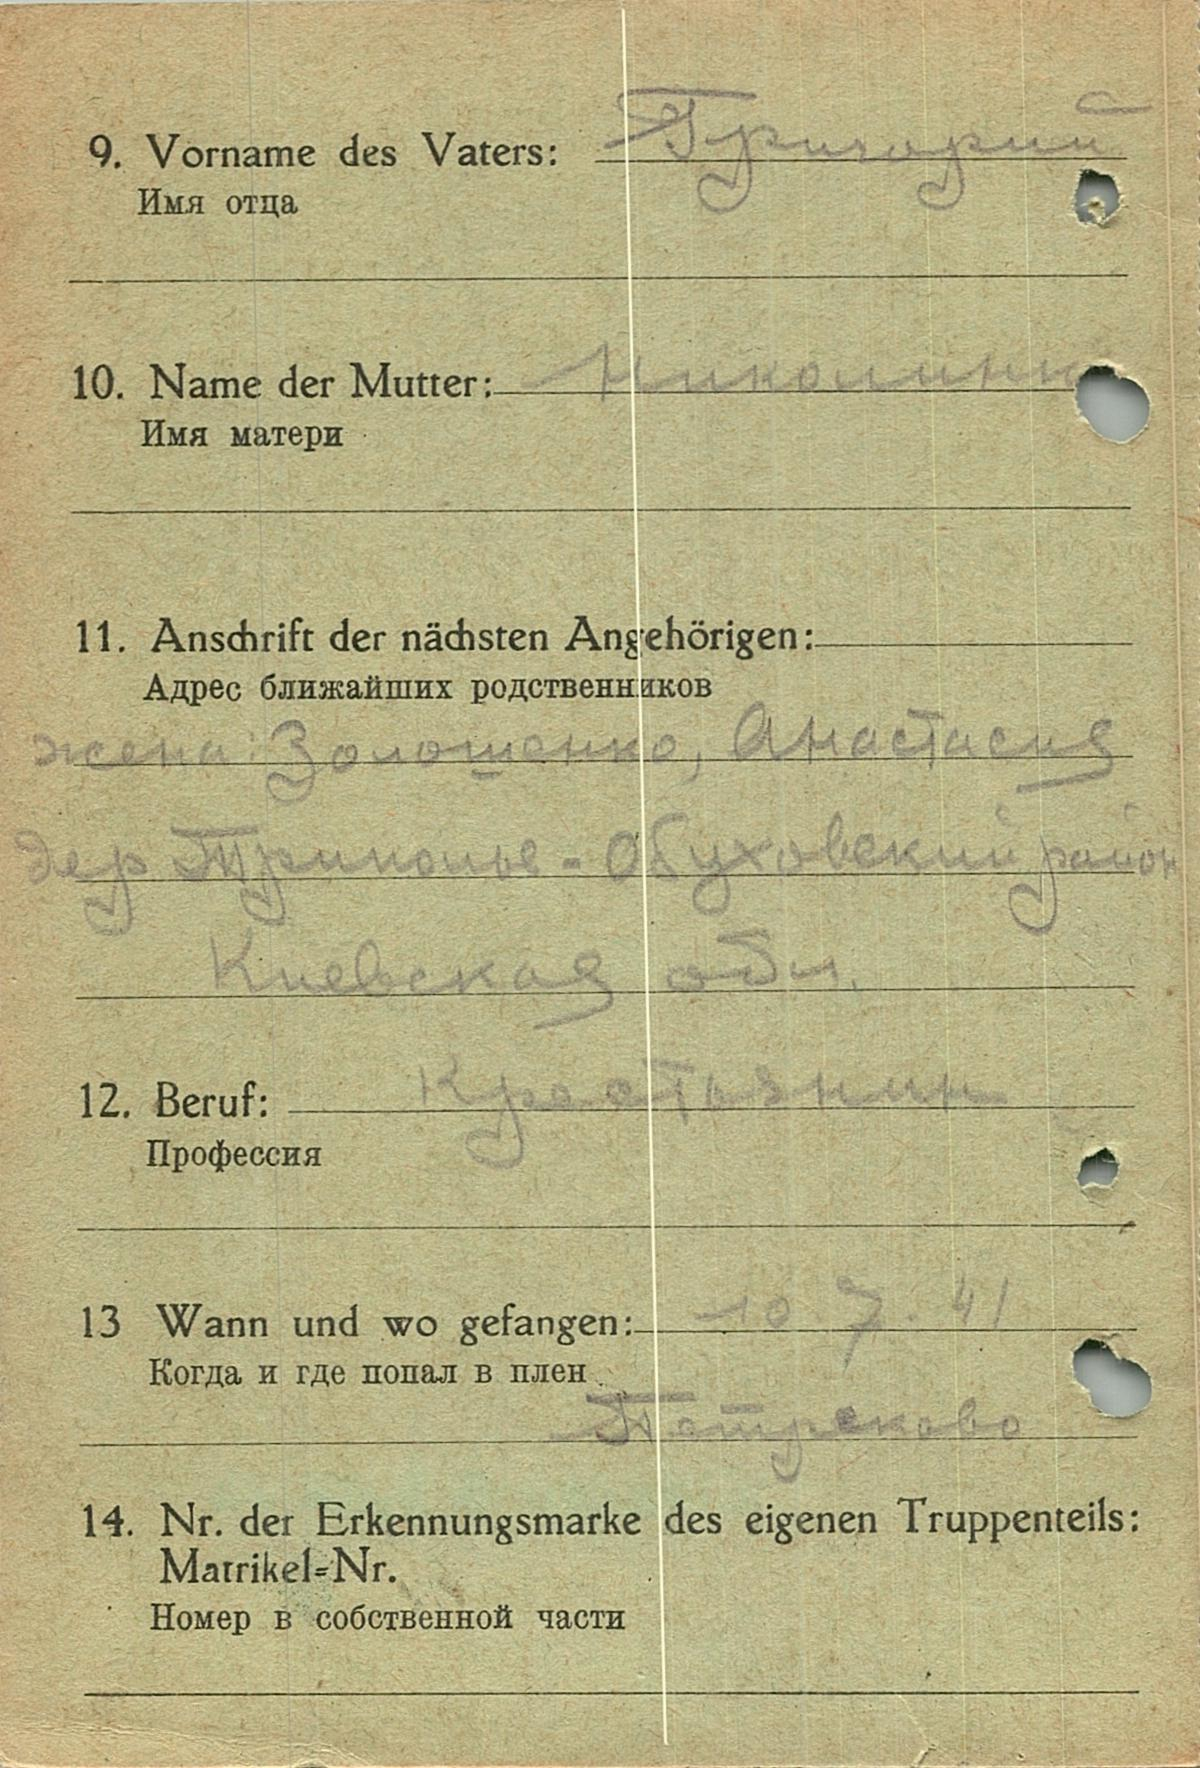 9. Vorname des Vaters: Григорий
Имя отца
10. Name der Mutter:
Имя матери
11. Anschrift der nächsten Angehörigen:
Адрес ближайших родственников
жена: Золошенко, Анастасия
дер Триполье - Обуховский район
Киевская обл.
12. Beruf: Крестьянин
Профессия
13 Wann und wo gefangen: 10 7. 41
Когда и где попал в плен
14. Nr. der Erkennungsmarke des eigenen Truppenteils:
Matrikel-Nr.
Номер в собственной части